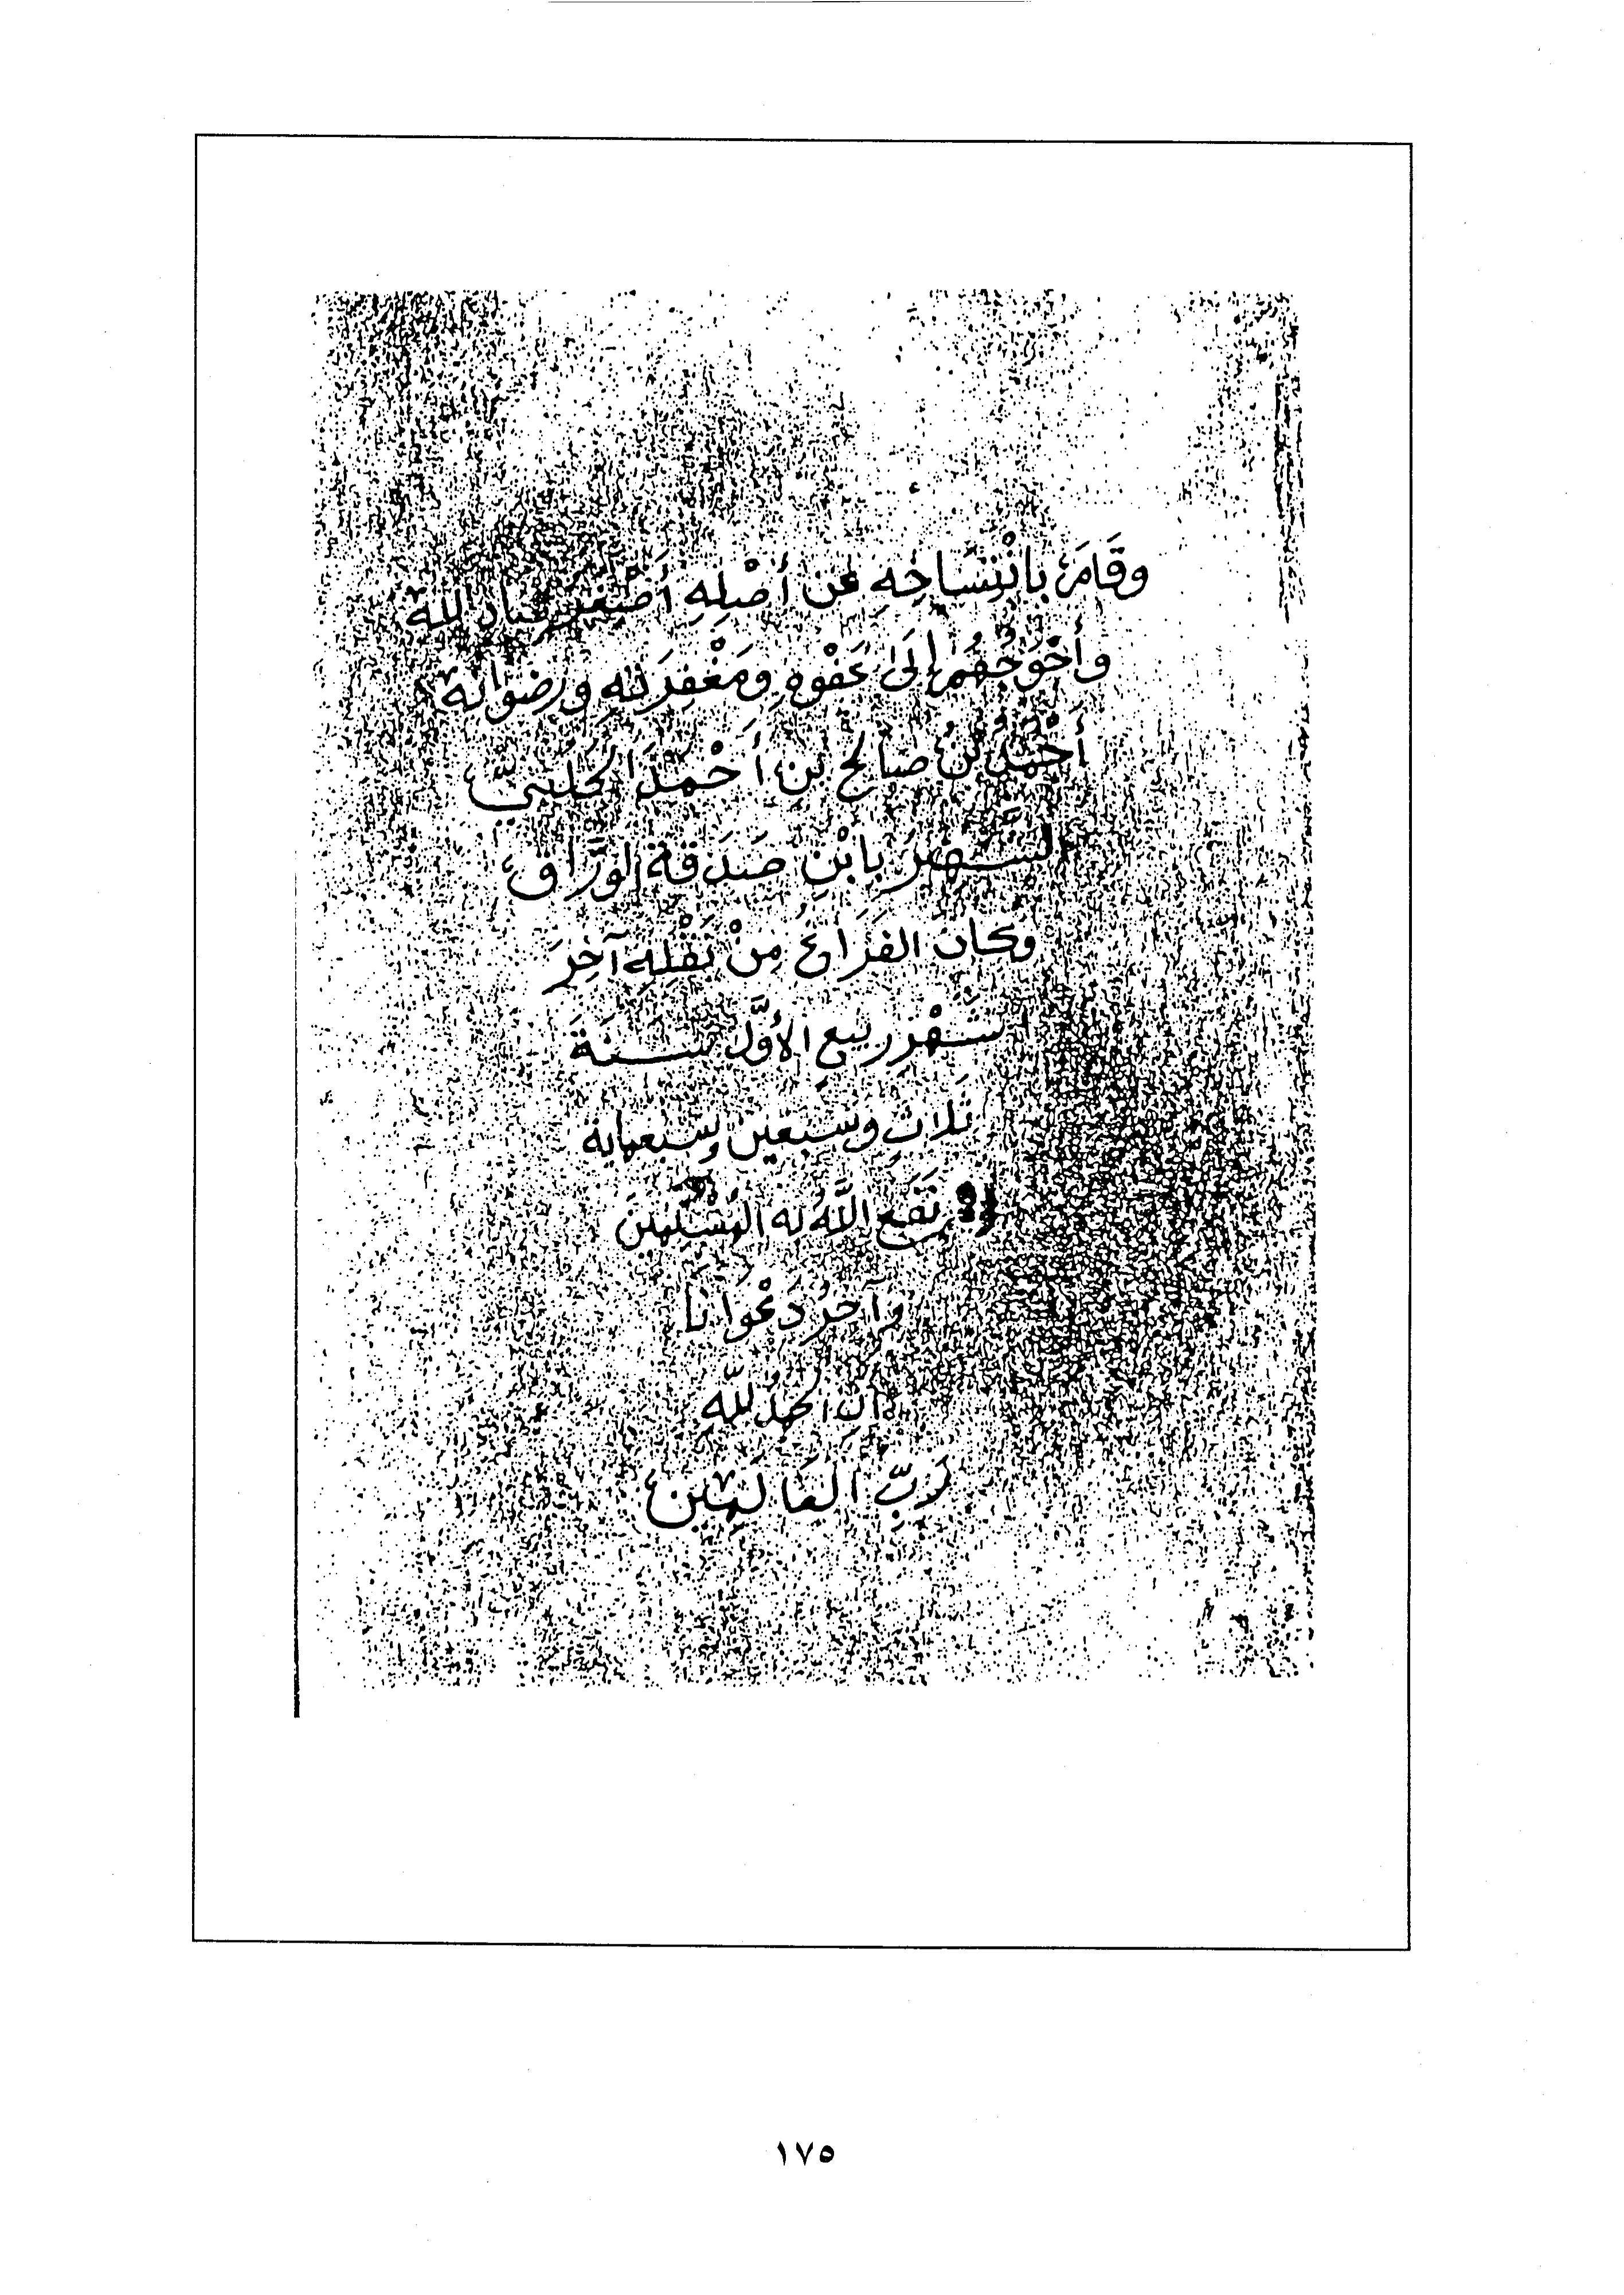 وقَامَ بانْتِسَاخِهِ عن أَصْلِهِ أَصْغَرُ عباد الله
وأَحْوَجُهُم إِلَى عَفْوِهِ ومَغْفِرَتِهِ ورضوانه
أَحْمَدُ بْنُ صَالح بن أَحْمَدَ الحَلَبِيّ
الشَّهِيرُ بابْنِ صَدَقَة الوَرَّاق
وكان الفَرَاغُ مِنْ نَقْلِهِ آخِرَ
شَهْرِ ربيع الأَوَّل سَنَةَ
ثَلَاثٍ وسَبْعين وسبعماية
نَفَعَ اللَّهُ به المُسْلِمِينَ
وآخِرُ دَعْوَانَا
أن الحمدُ للّه
رَبِّ العَالَمِين
١٧٥